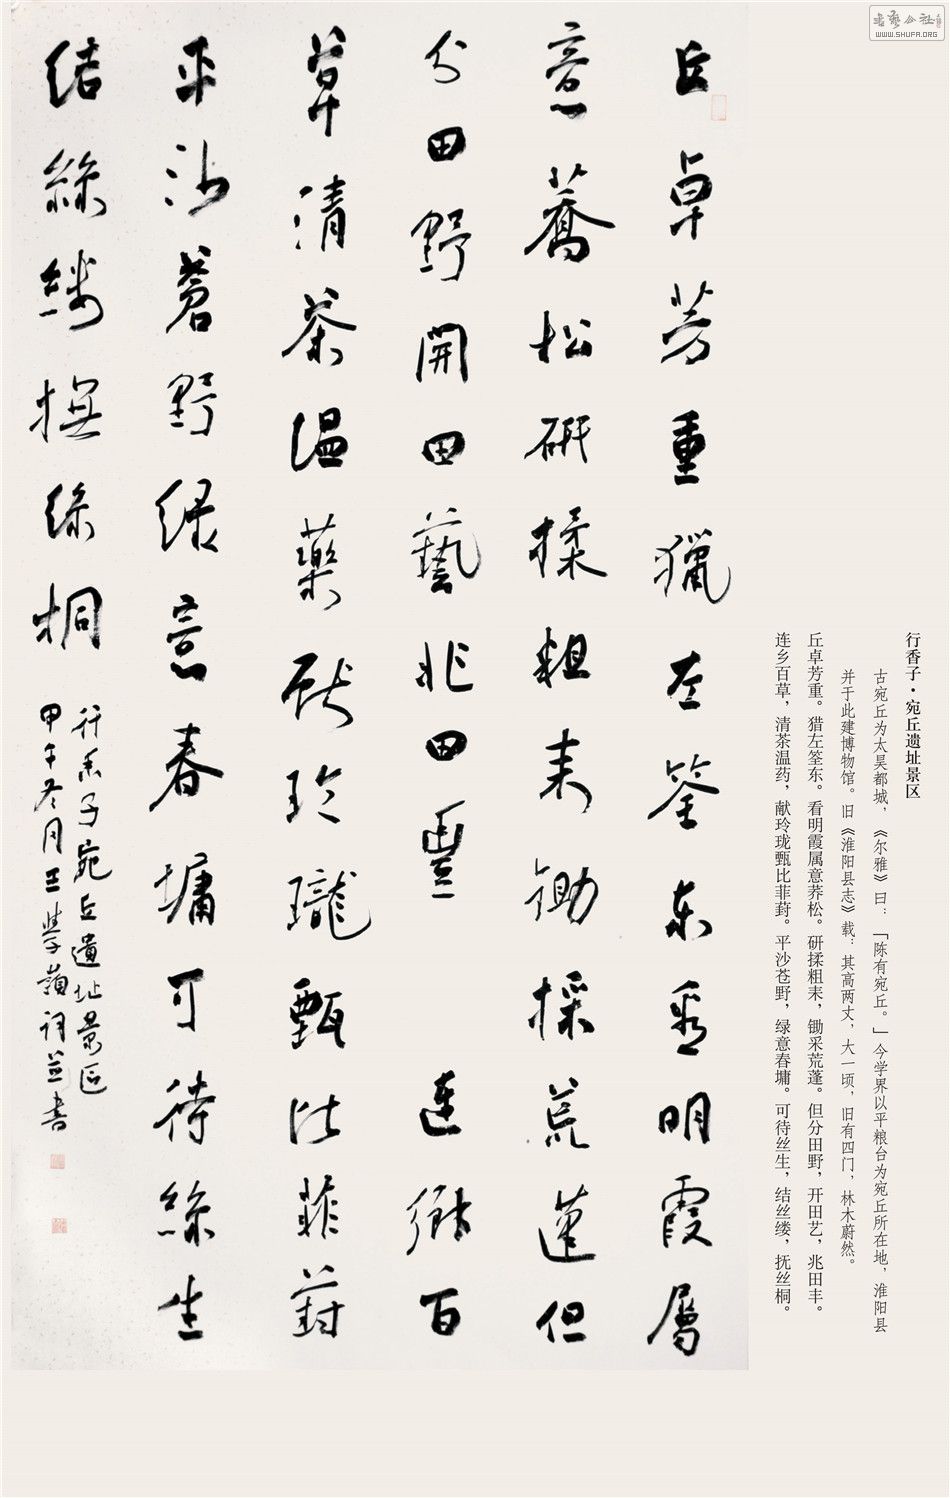 书艺公社
WWW.SHUFA.ORG
行香子·宛丘遗址景区
古宛丘为太昊都城，《尔雅》曰：「陈有宛丘。」今学界以平粮台为宛丘所在地，淮阳县
并于此建博物馆。旧《淮阳县志》载：其高两丈，大一顷，旧有四门，林木蔚然。
丘卓芳重。猎左筌东。看明霞属意荞松。研揉粗耒，锄采荒蓬。但分田野，开田艺，兆田丰。
连乡百草，清茶温药，献玲珑甄比菲葑。平沙苍野，绿意春墉。可待丝生，结丝缕，抚丝桐。
丘卓芳重獵左筌東看明霞屬
意蕎松研揉粗耒鋤採荒蓬但
分田野開田藝兆田豐連鄉百
草清茶温藥献玲瓏甄比菲葑
平沙蒼野緑意春墉可待絲生
结絲縷撫絲桐
行香子宛丘遺址景區
甲午冬月王學嶺詞並書